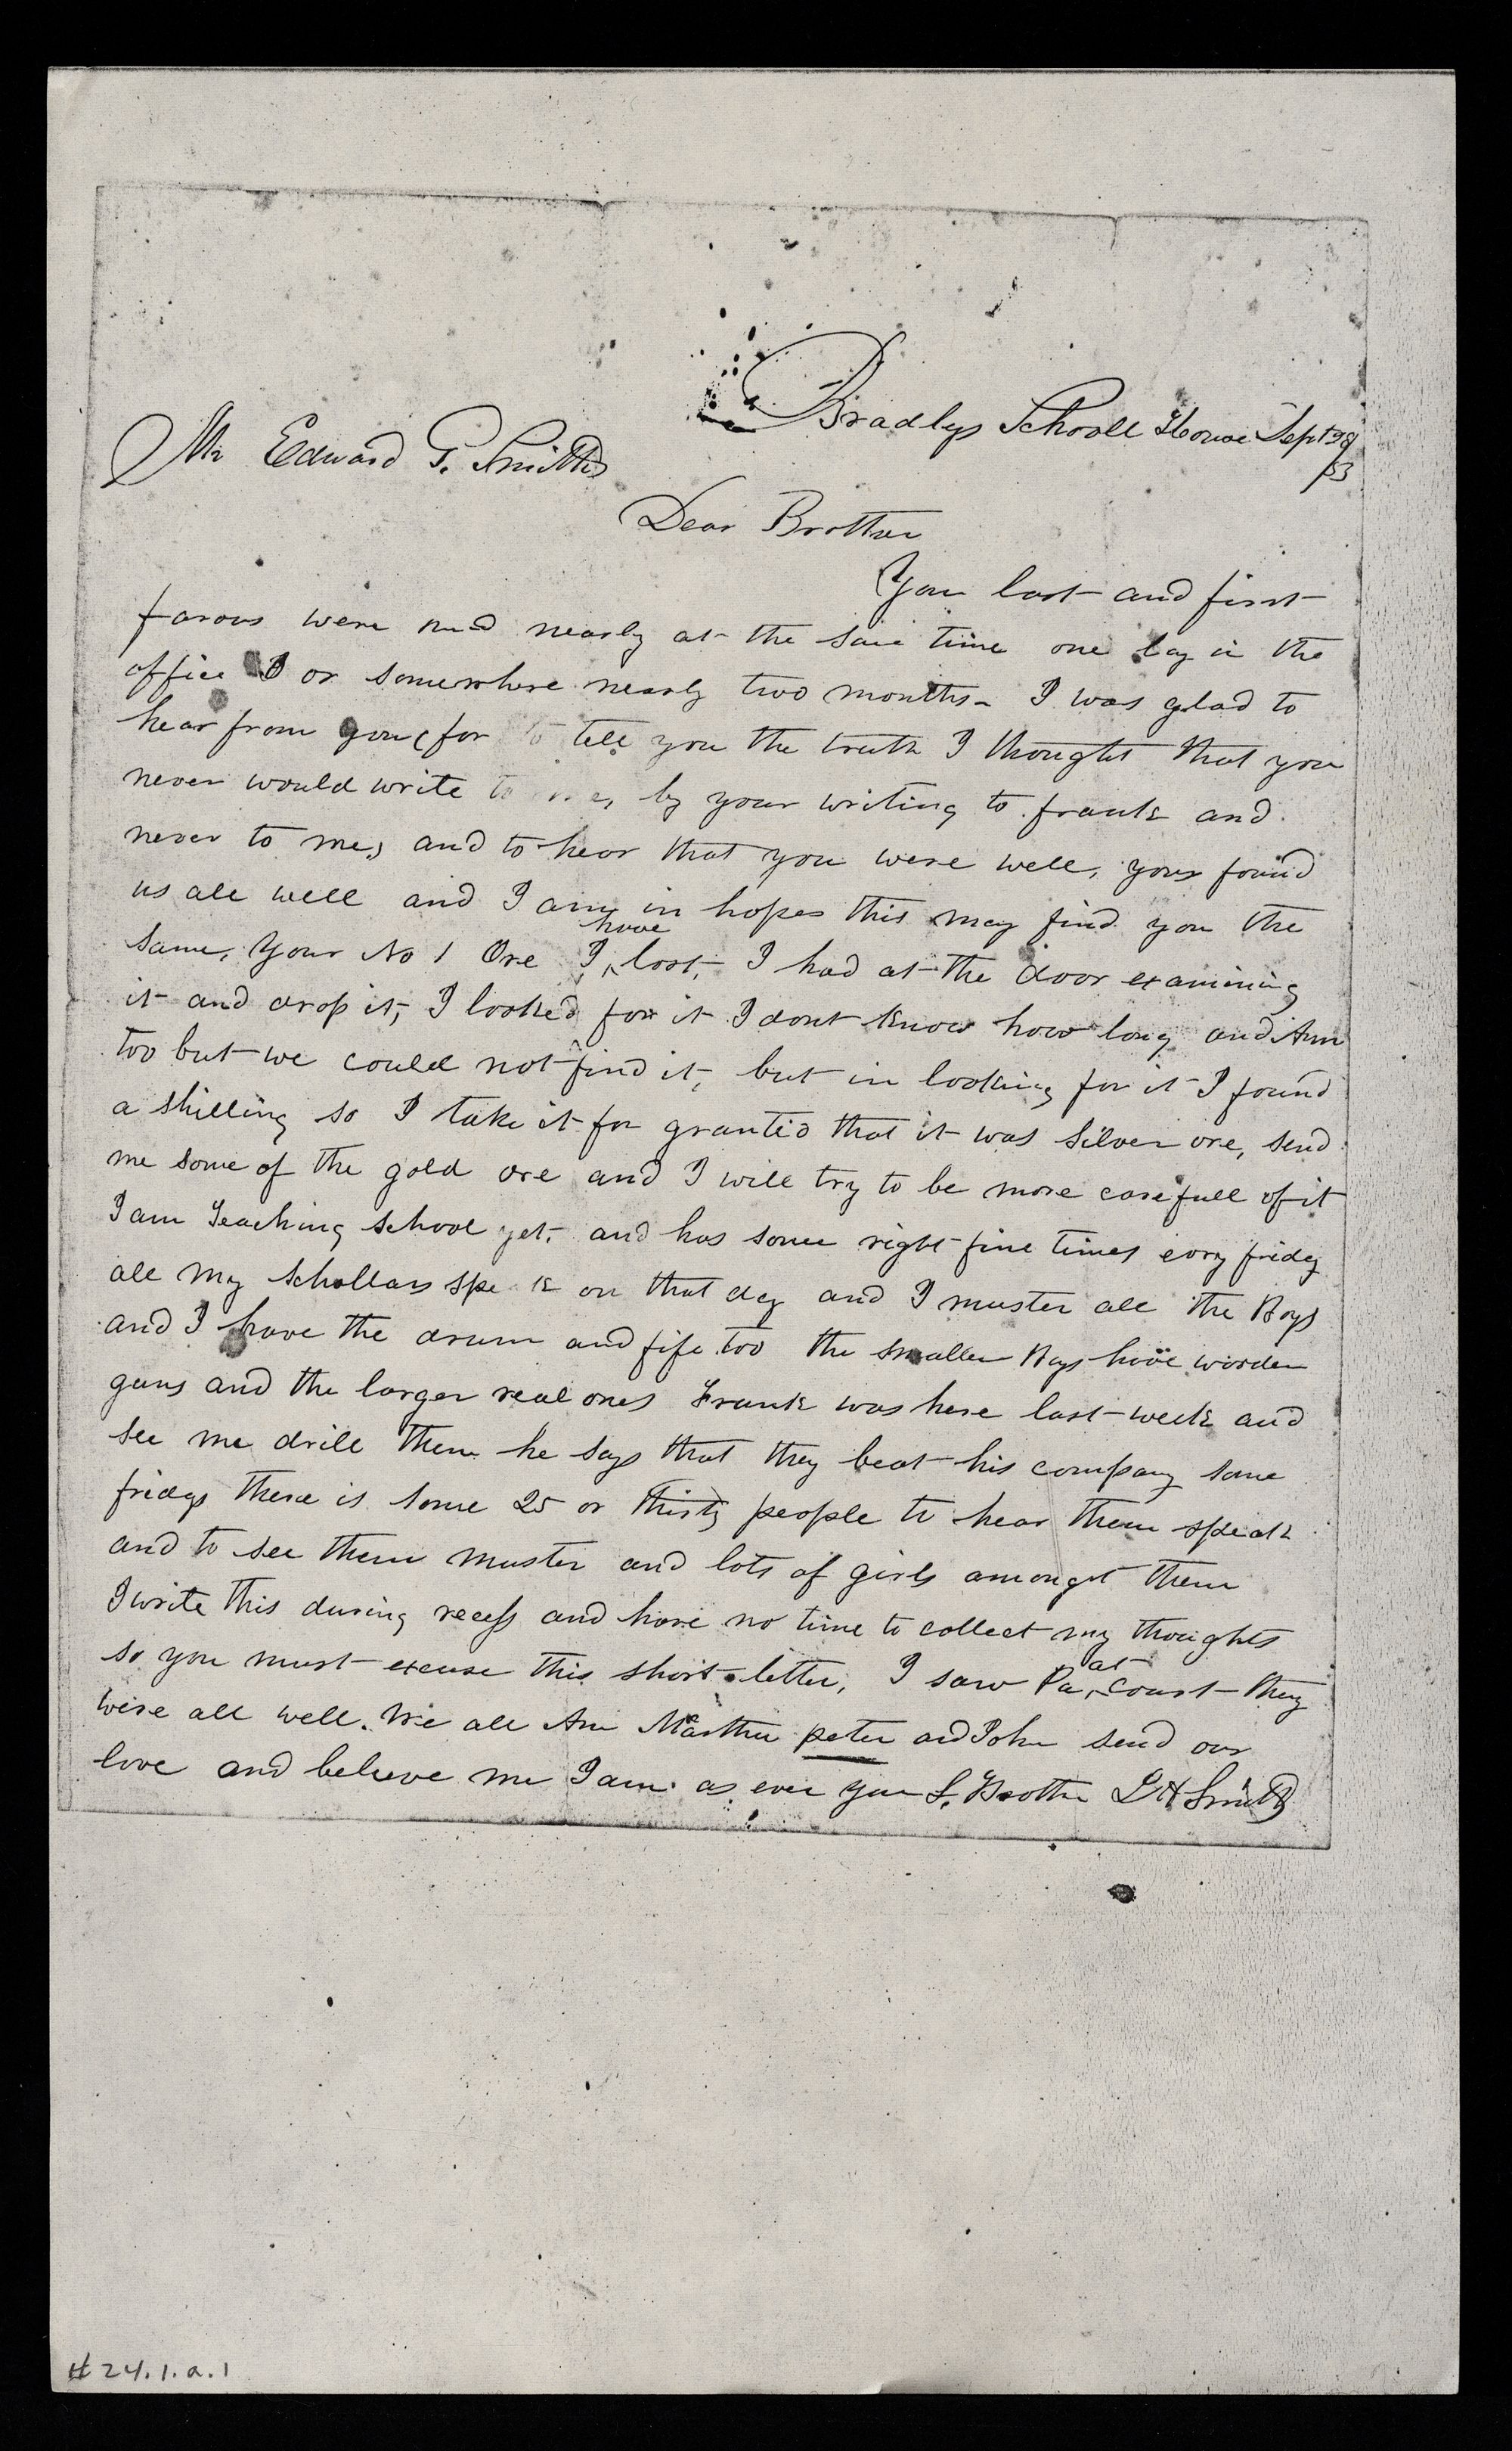 Bradlys Schooll House Sept 28
/53
Mr Edward G. Smith
Dear Brother
You last and first
favors were recd nearly at the same time one lay in the
office or somewhere nearly two months. I was glad to
hear from you (for to tell you the truth I thought that you
never would write to me, by your writing to frank and
never to me) and to hear that you were well, yours found
us all well and I am in hopes this may find you the
same, Your No 1 Ore I have lost, I had at the door examining
it and drop it, I looked for it I dont know how long and Ann
too but we could not find it, but in looking for it I found
a shilling so I take it for granted that it was Silver ore, send
me some of the gold ore and I will try to be more carefull of it
I am Teaching school yet, and has some right fine times evry friday
all my schollars spe k on that day and I muster all the Boys
and I have the drum and fife too the smaller Boys have wooden
guns and the larger real ones Frank was here last week and
see me drill them he says that they beat his company some
fridays there is some 25 or thirty people to hear them speak
and to see them muster and lots of girls amongst them
I write this during recess and have no time to collect my thoughts
so you must excuse this short letter, I saw Pa, at court they
were all well. We all Ann Marthu peter and John send our
love and believe me I am as ever your S. Brother L H Smith
# 24.1.a.1